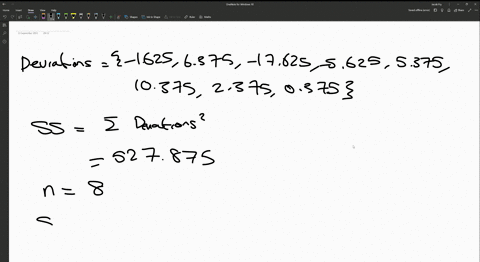 Deviations = {-1.625, 6.375, -17.625, -5.625, 5.375,
10.375, 2.375, 0.375}
SS = Σ Deviations²
= 527.875
n = 8
S